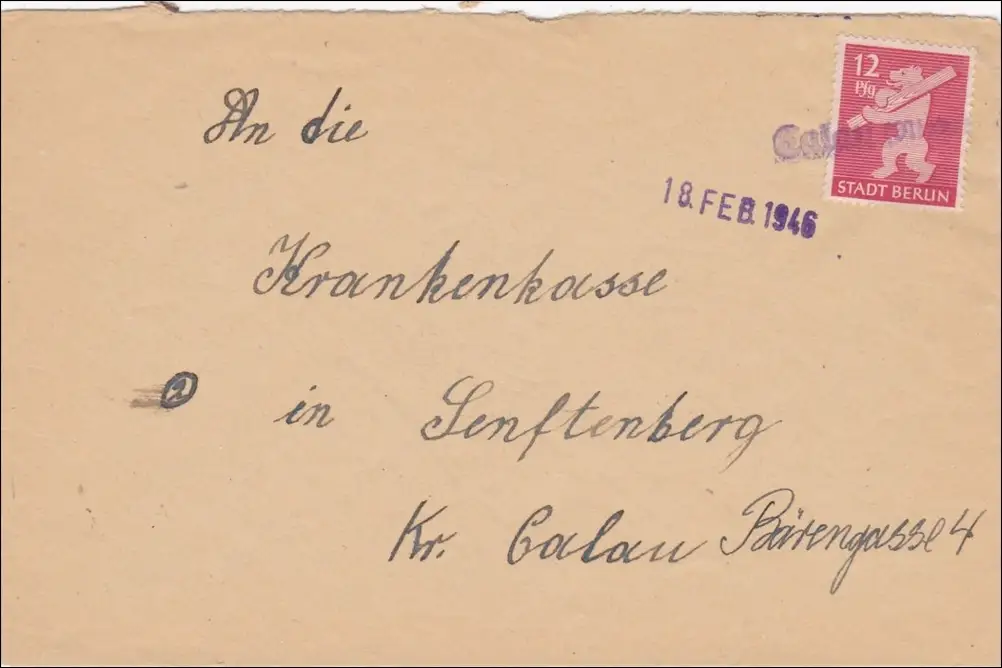 12
Pfg
STADT BERLIN
18. FEB. 1946
An die
Krankenkasse
2
in Senftenberg
Kr. Calau Bärengasse 4